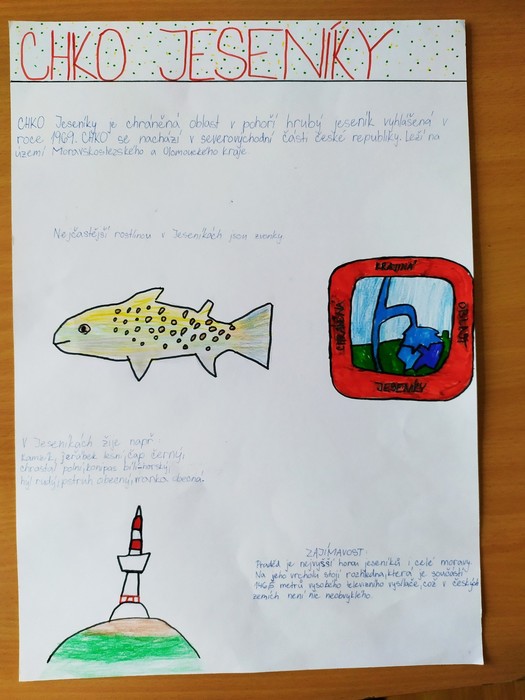 CHKO JESENÍKY
CHKO Jeseníky je chráněná oblast v pohoří hrubý jeseník vyhlášená v
roce 1969. CHKO se nachází v severovýchodní části české republiky. Leží na
území Moravskoslezského a Olomouckého kraje
Nejčastější rostlinou v Jeseníkách jsou zvonky
KRAJINNÁ
CHRÁNĚNÁ
OBLAST
JESENÍKY
V Jeseníkách žije např:
Kamzík, jeřábek lesní, čáp černý,
chrastal polní, konipas
rudý, obecný, obecná
ZAJÍMAVOST:
Praděd je nejvyšší horou jeseníků i celé moravy.
Na jeho vrcholu stojí rozhledna, která je součástí
metrů vysokého televizního vysílače, což v českých
zemích není nic neobvyklého.